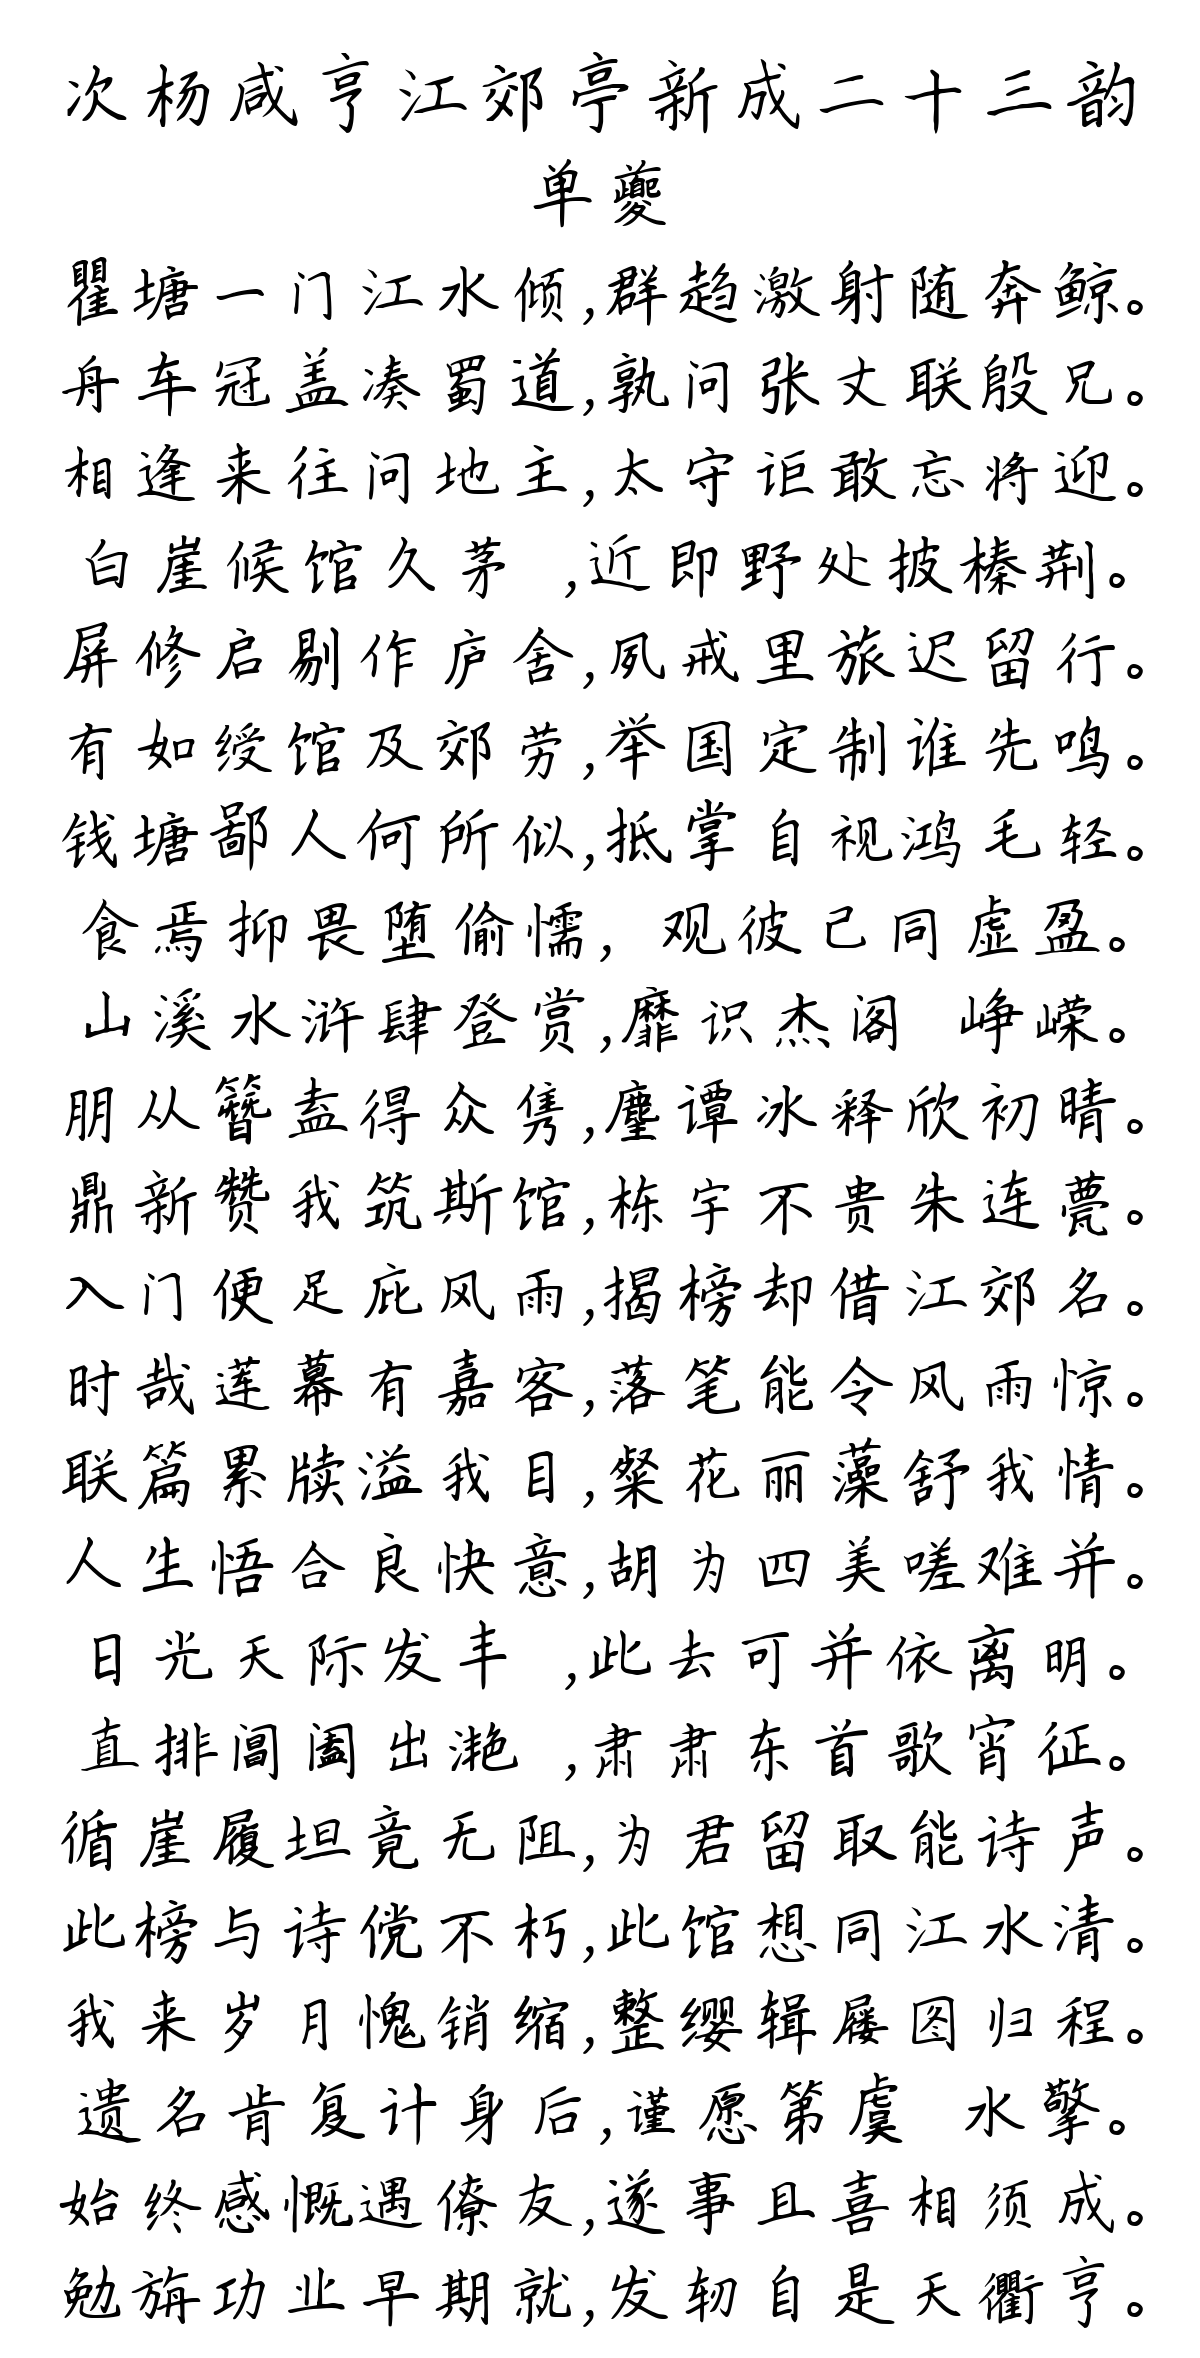 次杨咸亨江郊亭新成二十三韵
单夔
瞿塘一门江水倾,群趋激射随奔鲸。
舟车冠盖凑蜀道,孰问张丈联殷兄。
相逢来往问地主,太守讵敢忘将迎。
白崖候馆久茅 ,近即野处披榛荆。
屏修启剔作庐舍,夙戒里旅迟留行。
有如绶馆及郊劳,举国定制谁先鸣。
钱塘鄙人何所似,抵掌自视鸿毛轻。
食焉抑畏堕偷懦, 观彼己同虚盈。
山溪水浒肆登赏,靡识杰阁 峥嵘。
朋从簪盍得众隽,麈谭冰释欣初晴。
鼎新赞我筑斯馆,栋宇不贵朱连甍。
入门便足庇风雨,揭榜却借江郊名。
时哉莲幕有嘉客,落笔能令风雨惊。
联篇累牍溢我目,粲花丽藻舒我情。
人生悟合良快意,胡为四美嗟难并。
日光天际发丰 ,此去可并依离明。
直排阊阖出滟 ,肃肃东首歌宵征。
循崖履坦竟无阻,为君留取能诗声。
此榜与诗傥不朽,此馆想同江水清。
我来岁月愧销缩,整缨辑屦图归程。
遗名肯复计身后,谨愿第虞 水擎。
始终感慨遇僚友,遂事且喜相须成。
勉旃功业早期就,发轫自是天衢亨。